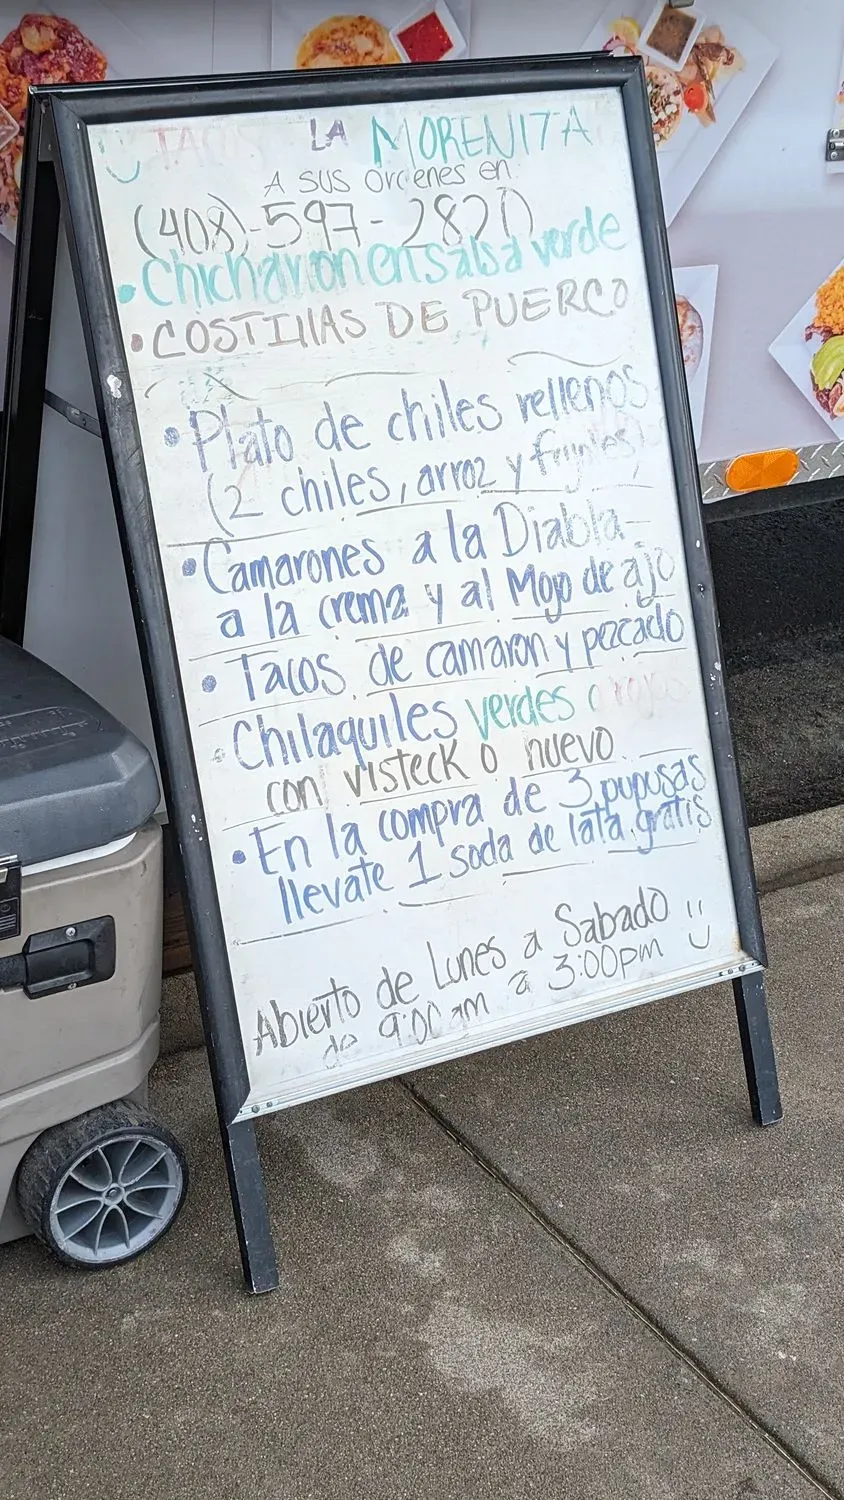 TACOS LA MORENITA
A SUS Ordenes en
(408)-597-2820
• Chicharron en salsa verde
• COSTILLAS DE PUERCO
• Plato de chiles rellenos
(2 chiles, arroz y frijoles)
• Camarones a la Diabla-
a la crema y al Mojo de ajo
• Tacos de camaron y pezcado
• Chilaquiles verdes o rojos
con visteck o huevo
• En la compra de 3 pupusas
llevate 1 soda de lata gratis
Abierto de Lunes a Sabado
de 9:00am a 3:00pm